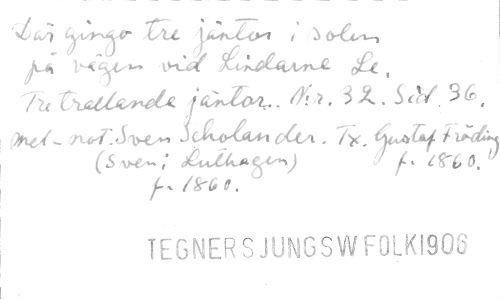 Där gingo tre jäntor i solen
på vägen vid Lindarne Le.
Tre trallande jäntor. Nr. 32. Sid. 36.
mel-not. Sven Scholander. Tx. Gustaf Fröding
(Sven i Luthagen) f. 1860.
f. 1860.
TEGNERSJUNGSWFOLK1906